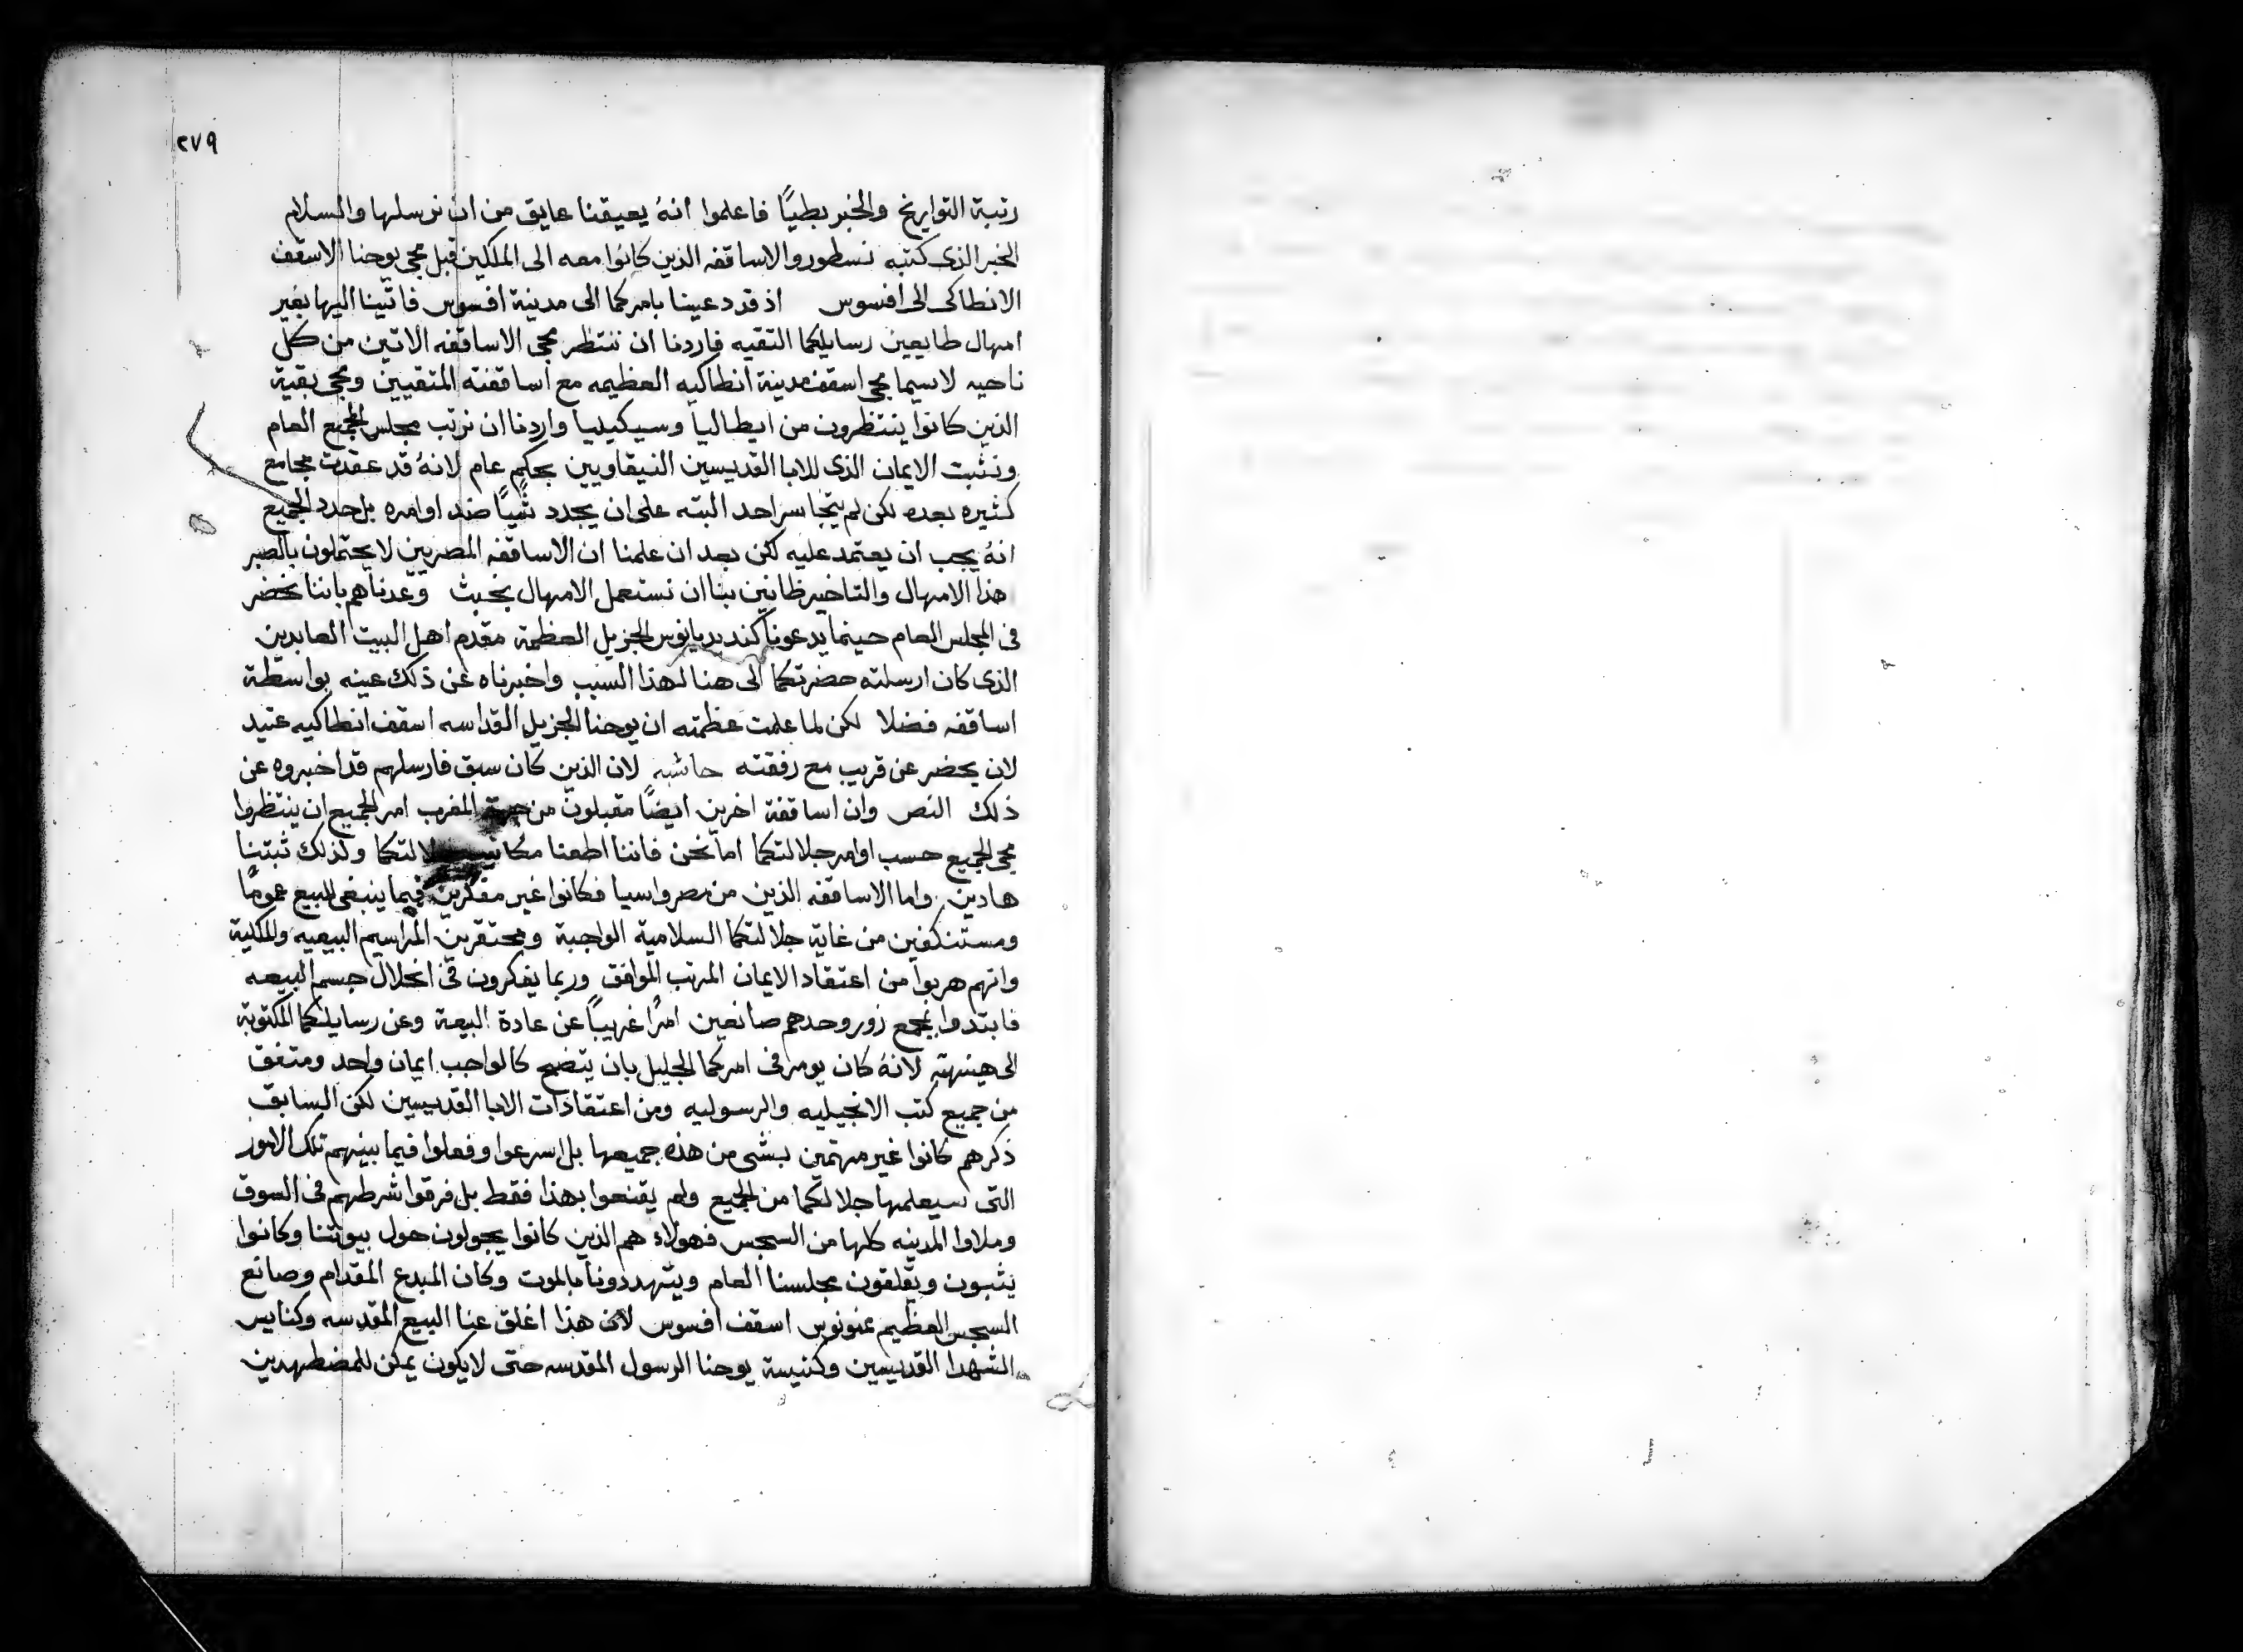 ٢٧٩
رتبة التواريخ والخبر بطيًا فاعلموا انهُ يعيقنا عايق من ان نرسلها والسلام
الخبر الذى كتبه نسطور والاساقفه الذين كانوا معه الى الملكين قبل مجى يوحنا الاسقف
الانطاكى الى افسوس اذ قد دعينا بامركما الى مدينة افسوس فاتينا اليها بغير
امهال طايعين رسايلكما التقيه فاردنا ان ننتظر مجى الاساقفه الاتين من كل
ناحيه لاسيما مجى اسقف مدينة انطاكيه العظيمه مع اساقفته المتقيين ومجى بقية
الذين كانوا ينتظرون من ايطاليا وسيكيليا واردنا ان نرتب مجلس المجمع العام
ونثبت الايمان الذى للابا القديسين النيقاويين بحكم عام لانهُ قد عقدت مجامع
كثيره بعده لكن لم يتجاسر احد البته على ان يجدد شيًا ضد اوامره بل حدد الجميع
انهُ يجب ان يعتمد عليه لكن بعد ان علمنا ان الاساقفه المصريين لا يحتملون بالصبر
هذا الامهال والتاخير ظانين بنا ان نستعمل الامهال بخبث وعدناهم باننا نحضر
فى المجلس العام حينما يدعونا كنديديانوس الجزيل العظمة مقدم اهل البيت العابدين
الذى كان ارسلته حضرتكما الى هنا لهذا السبب واخبرناه عن ذلك عينه بواسطة
اساقفه فضلا لكن لما علمت عظمته ان يوحنا الجزيل القداسه اسقف انطاكيه عتيد
لان يحضر عن قريب مع رفقته حاشيه لان الذين كان سبق فارسلهم قد اخبروه عن
ذلك النص وان اساقفة اخرين ايضًا مقبلون من جهة المغرب امر الجميع ان ينتظروا
مجى الجميع حسب اوامر جلالتكما اما نحن فاننا اطعنا جلالتكما ولذلك ثبتنا
هادين واما الاساقفه الذين من مصر واسيا فكانوا غير مفكرين فيما ينبغى للبيع عمومًا
ومستنكفين من غاية جلالتكما السلامية الواجبة ومحتقرين المراسيم البيعيه والملكية
وانهم هربوا من اعتقاد الايمان المرتب الموافق وربما يفكرون فى انحلال جسم البيعه
فابتدوا بمجمع زور وحدهم صانعين امرًا غريبًا عن عادة البيعة وعن رسايلكما المكتوبة
الى لانهُ كان يومر فى امركما الجليل بان يتضح كالواجب ايمان واحد ومتفق
من جميع كتب الانجيليه والرسوليه ومن اعتقادات الابا القديسين لكن السابق
ذكرهم كانوا غير مهتمين بشى من هذه جميعها بل اسرعوا وفعلوا فيما بينهم تلك الامور
التى سيعلمها جلالتكما من الجميع ولم يقنعوا بهذا فقط بل فرقوا شرطهم فى السوق
وملاوا المدينه كلها من السجس فهولاء هم الذين كانوا يجولون حول بيوتنا وكانوا
يثبون ويقلقون مجلسنا العام ويتهددونا بالموت وكان المبدع المقدام وصانع
السجس العظيم ممنونوس اسقف افسوس لان هذا اغلق عنا البيع المقدسه وكنايس
الشهدا القديسين وكنيسة يوحنا الرسول المقدسه حتى لا يكون يمكن للمضطهدين